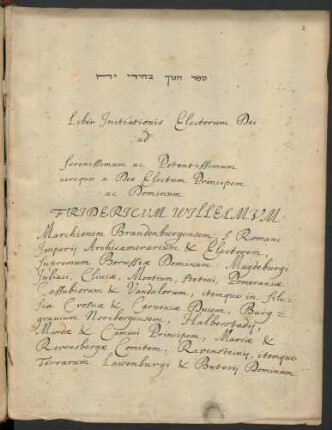 ספר חנוך בחירי יה
Liber Initiationis Electorum Dei
ad
Serenissimum ac Potentissimum
verequè a Deo Electum Principem
ac Dominum
FRIDERICUM WILLELMUM
Marchionem Brandenburgensem, S. Romani
Imperij Archicamerarium & Electorem,
Supremum Borussiæ Dominum, Magdeburgi
Juliaci, Cliviæ, Montium, Stetini, Pomeraniæ
Cassubiorum & Vandalorum, itemque in Sile-
sia Crosnæ & Carnoviæ Ducem, Burg-
gravium Noribergensem, Halberstadij,
Mindæ & Camini Principem, Marciæ &
Ravensbergæ Comitem, Ravensteinij, itemque
Terrarum Lawenburgi & Butovij Dominum